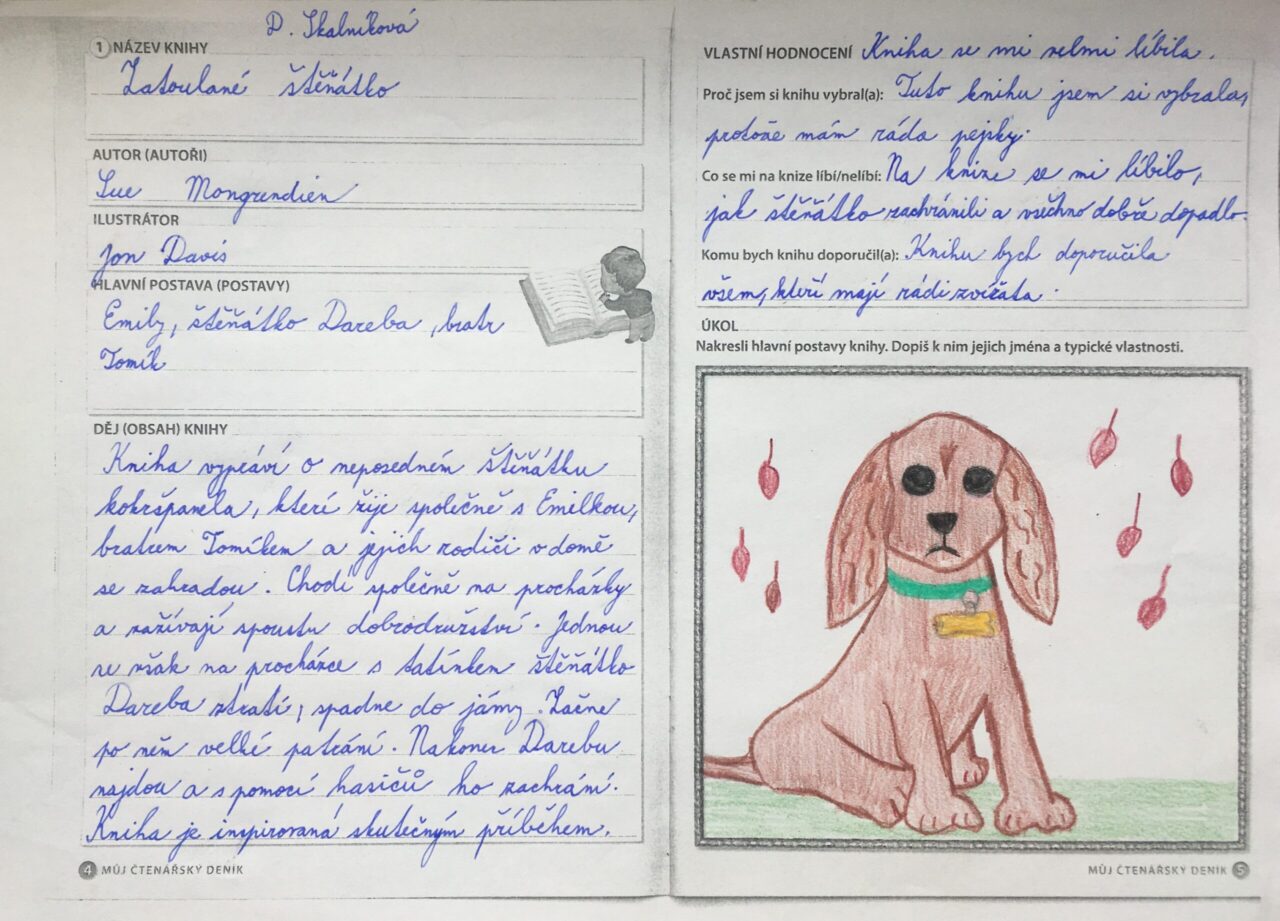 D. Skalníková
1 NÁZEV KNIHY
Zatoulané štěňátko
AUTOR (AUTOŘI)
Sue Mongrendien
ILUSTRÁTOR
Jon Davis
HLAVNÍ POSTAVA (POSTAVY)
Emily, štěňátko Dareba, bratr
Tomík
DĚJ (OBSAH) KNIHY
Kniha vypráví o neposedném štěňátku
kokršpanela, které žije společně s Emilkou,
bratrem Tomíkem a jejich rodiči v domě
se zahradou. Chodí společně na procházky
a zažívají spoustu dobrodružství. Jednou
se však na procházce s tatínkem štěňátko
Dareba ztratí, spadne do jámy. Začne
po něm velké pátrání. Nakonec Darebu
najdou a s pomocí hasičů ho zachrání.
Kniha je inspirovaná skutečným příběhem.
4 MŮJ ČTENÁŘSKÝ DENÍK
VLASTNÍ HODNOCENÍ Kniha se mi velmi líbila.
Proč jsem si knihu vybral(a): Tuto knihu jsem si vybrala,
protože mám ráda pejsky.
Co se mi na knize líbí/nelíbí: Na knize se mi líbilo,
jak štěňátko zachránili a všechno dobře dopadlo.
Komu bych knihu doporučil(a): Knihu bych doporučila
všem, kteří mají rádi zvířata.
ÚKOL
Nakresli hlavní postavy knihy. Dopiš k nim jejich jména a typické vlastnosti.
MŮJ ČTENÁŘSKÝ DENÍK 5